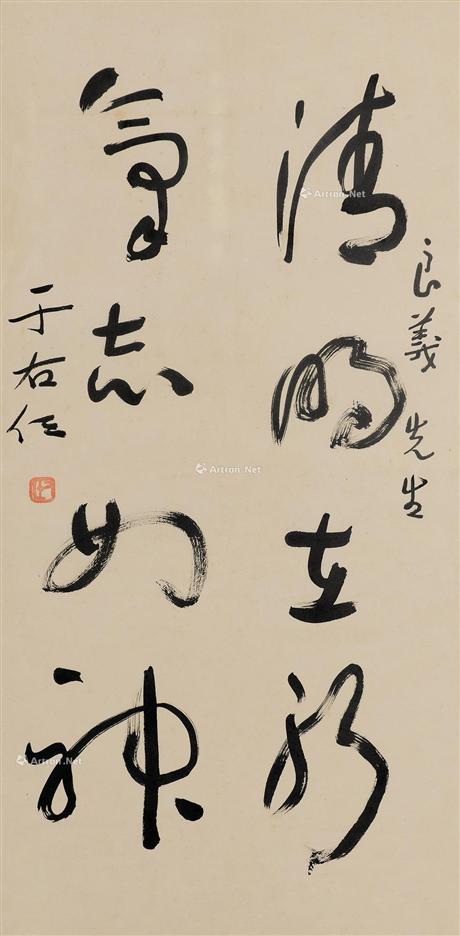 良義先生
清明在躬
氣志如神
于右任
Artron.Net
Artron.Net
Artron.Net